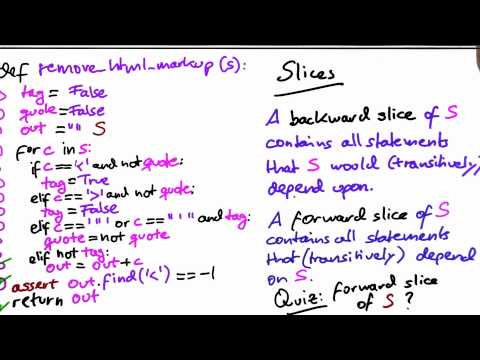 def remove_html_markup (s):
tag = False
quote=False
out ="" S
for c in s:
if c=='<' and not quote:
tag=True
elif c=='>' and not quote:
tag = False
elif c=='"' or c=="'" and tag:
quote=not quote
elif not tag:
out = out+c
assert out.find('<') == -1
return out
Slices
A backward slice of S
contains all statements
that S would (transitively)
depend upon.
A forward slice of S
contains all statements
that (transitively) depend
on S.
Quiz: forward slice
of S ?